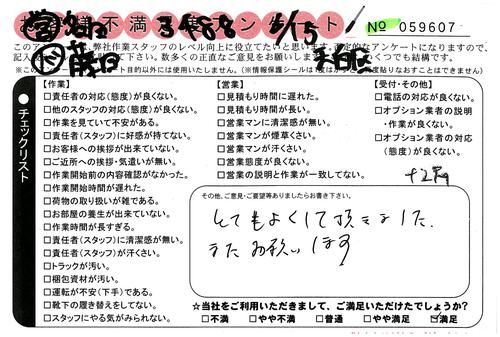 不満 アンケート
№ 059607
弊社作業スタッフのレベル向上に役立てたいと思います。
数多くの正直なご意見をお願いします。
チェックリスト
【作業】
□責任者の対応(態度)が良くない。
□他のスタッフの対応(態度)が良くない。
□作業を見ていて不安がある。
□責任者(スタッフ)に好感が持てない。
□お客様への挨拶が出来ていない。
□ご近所への挨拶・気遣いが無い。
□作業開始前の内容確認がなかった。
□作業開始時間が遅れた。
□荷物の取り扱いが雑である。
□お部屋の養生が出来ていない。
□作業時間が長すぎる。
□責任者(スタッフ)に清潔感が無い。
□責任者(スタッフ)が汗くさい。
□トラックが汚い。
□梱包資材が汚い。
□運転が不安(下手)である。
□靴下の履き替えをしていない。
□スタッフにやる気がみられない。
【営業】
□見積もり時間に遅れた。
□見積もり時間が長い。
□営業マンに清潔感が無い。
□営業マンが煙草くさい。
□営業マンが汗くさい。
□営業態度が良くない。
□営業の説明と作業が一致してない。
【受付・その他】
□電話の対応が良くない。
□オプション業者の説明
・作業が良くない。
□オプション業者の対応
(態度)が良くない。
その他、ご意見・ご要望等ありましたらお書き下さい。
とてもよくして頂きました。
またお願いします
☆当社をご利用いただきまして、ご満足いただけたでしょうか?
□不満 □やや不満 □普通 □やや満足 ☑満足